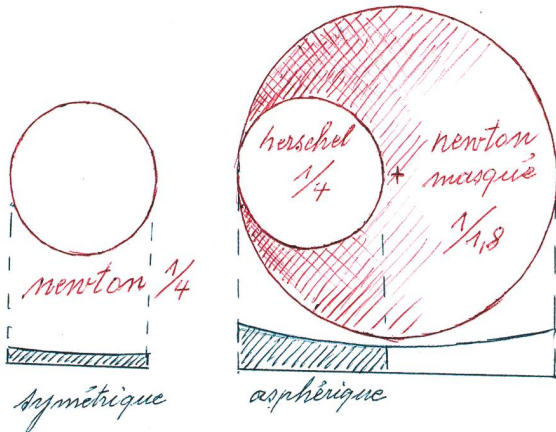 newton 1/4
symétrique
herschel
1/4
+
newton
masqué
1/1,8
asphérique